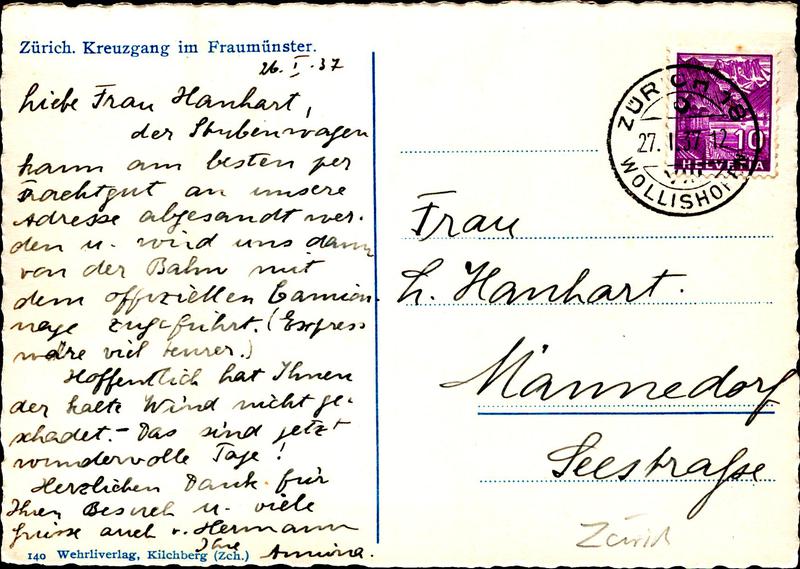 Zürich. Kreuzgang im Fraumünster.
26. I. 37
Liebe Frau Hanhart,
der Stubenwagen
kann am besten per
Frachtgut an unsere
Adresse abgesandt wer-
den u. wird uns dann
von der Bahn mit
dem offiziellen Camion-
nage zugeführt. (Express
wäre viel teurer.)
Hoffentlich hat Ihnen
der kalte Wind nicht ge-
schadet. - Das sind jetzt
wundervolle Tage!
Herzlichen Dank für
Ihren Besuch u. viele
Grüsse auch v. Hermann
Ihre
140 Wehrliverlag, Kilchberg (Zch.)
ZÜRICH 18
27. I. 37. 12
VIII
WOLLISHOFEN
10
HELVETIA
Frau
H. Hanhart.
Männedorf
Seestraße
Zürich